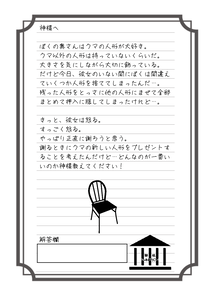 神様へ
ぼくの奥さんはウマの人形が大好き。
ウマ以外の人形は持っていないくらいだ。
大きさを気にしながら大切に飾っている。
だけど今日、彼女のいない間にぼくは間違え
ていくつか人形を捨ててしまったんだ…。
残った人形をとっさに他の人形にまぜて全部
まとめて押入に隠してしまったけれど…。
きっと、彼女は怒る。
すっごく怒る。
やっぱり正直に謝ろうと思う。
謝るときにウマの新しい人形をプレゼントす
ることを考えたんだけど…どんなのが一番い
いのか神様教えてください！
解答欄